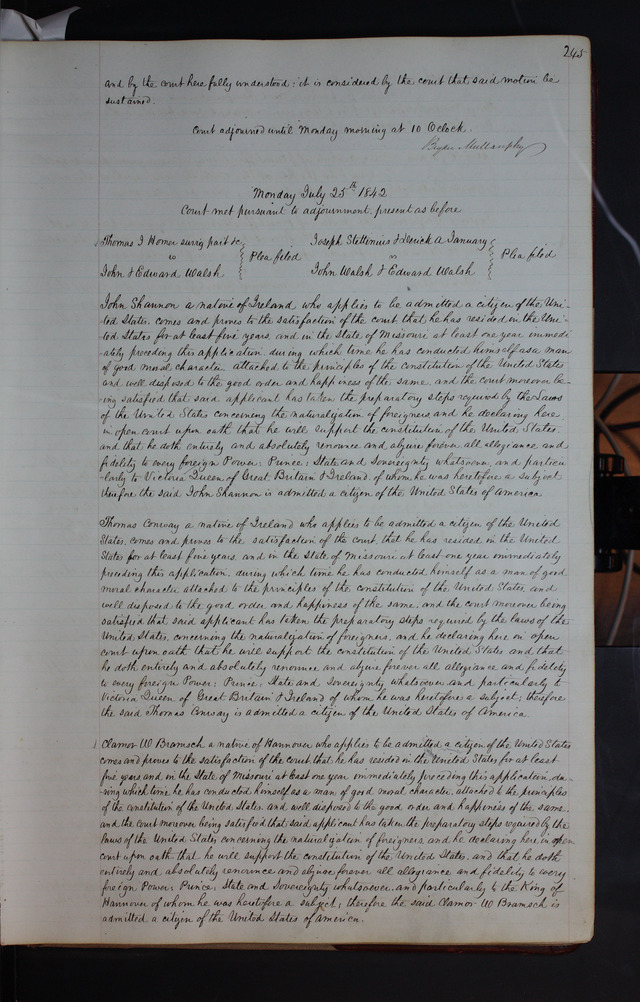 245
and by the court here fully understood; it is considered by the court that said motion be
sustained.
Court adjourned until Monday morning at 10 Oclock.
Bryan Mullanphy
Monday July 25th 1842
Court met pursuant to adjournment, present as before
Thomas J Homer surviv part &c
vs
John & Edward Walsh
Plea filed
Joseph Stettinius & Derick A January
vs
John Walsh & Edward Walsh
Plea filed
John Shannon a native of Ireland who applies to be admitted a citizen of the Uni-
ted States, comes and proves to the satisfaction of the court that he has resided in the Uni-
ted States for at least five years, and in the State of Missouri at least one year immedi-
ately preceding this application, during which time he has conducted himself as a man
of good moral character attached to the principles of the constitution of the United States
and well disposed to the good order and happiness of the same, and the court moreover be-
ing satisfied that said applicant has taken the preparatory steps required by the Laws
of the United States concerning the naturalization of foreigners, and he declaring here
in open court upon oath that he will support the constitution of the United States
and that he doth entirely and absolutely renounce and abjure forever all allegiance and
fidelity to every foreign Power, Prince, State and Sovereignty whatsoever, and particu-
larly to Victoria Queen of Great Britain & Ireland of whom he was heretofore a subject
therefore the said John Shannon is admitted a citizen of the United States of America.
Thomas Conway a native of Ireland who applies to be admitted a citizen of the United
States, comes and proves to the satisfaction of the court that he has resided in the United
States for at least five years, and in the State of Missouri at least one year immediately
preceding this application, during which time he has conducted himself as a man of good
moral character attached to the principles of the constitution of the United States, and
well disposed to the good order and happiness of the same, and the court moreover being
satisfied that said applicant has taken the preparatory steps required by the laws of the
United States, concerning the naturalization of foreigners, and he declaring here in open
court upon oath that he will support the constitution of the United States and that
he doth entirely and absolutely renounce and abjure forever all allegiance and fidelity
to every foreign Power, Prince, State and Sovereignty whatsoever and particularly to
Victoria Queen of Great Britain & Ireland of whom he was heretofore a subject, therefore
the said Thomas Conway is admitted a citizen of the United States of America.
Clamor W Bramsch a native of Hannover who applies to be admitted a citizen of the United States
comes and proves to the satisfaction of the court that he has resided in the United States for at least
five years and in the State of Missouri at least one year immediately preceding this application, du-
ring which time he has conducted himself as a man of good moral character, attached to the principles
of the constitution of the United States, and well disposed to the good order and happiness of the same,
and the court moreover being satisfied that said applicant has taken the preparatory steps required by the
laws of the United States, concerning the naturalization of foreigners, and he declaring here in open
court upon oath that he will support the constitution of the United States, and that he doth
entirely and absolutely renounce and abjure forever all allegiance and fidelity to every
foreign Power, Prince, State and Sovereignty whatsoever, and particularly to the King of
Hannover of whom he was heretofore a subject, therefore the said Clamor W Bramsch is
admitted a citizen of the United States of America.